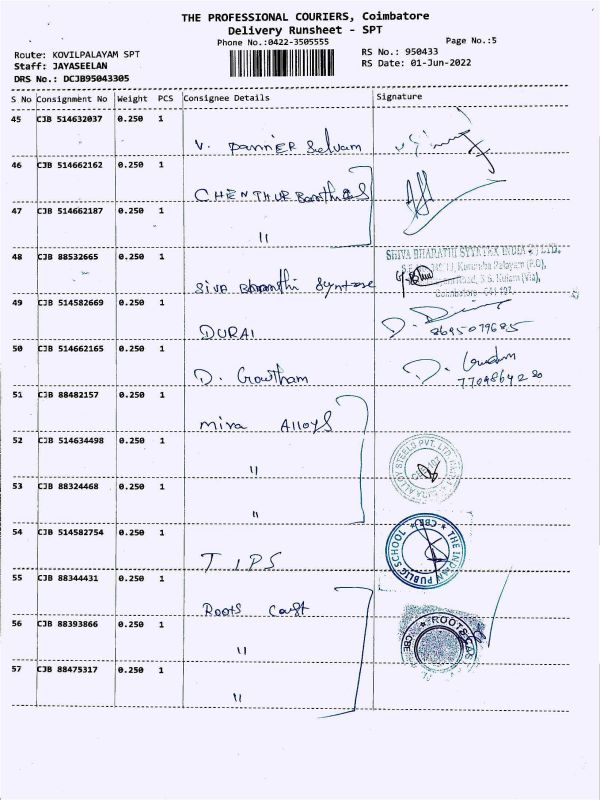 THE PROFESSIONAL COURIERS, Coimbatore
Delivery Runsheet - SPT
Phone No.:0422-3505555
Page No.:5
Route: KOVILPALAYAM SPT
RS No.: 950433
Staff: JAYASEELAN
RS Date: 01-Jun-2022
DRS No.: DCJB95043305
S No Consignment No Weight PCS Consignee Details Signature
45 CJB 514632037 0.250 1
V. Pannier Selvam
46 CJB 514662162 0.250 1
CHENTHUR
47 CJB 514662187 0.250 1
"
48 CJB 88532665 0.250 1
SHIVA BHARATHI SYNTEX INDIA (P) LTD.
Siva Bharathi
Coimbatore - 641 107.
49 CJB 514582669 0.250 1
DURAI
8695079685
50 CJB 514662165 0.250 1
D. Gowtham
D. Gowtham
51 CJB 88482157 0.250 1
Miva Alloys
52 CJB 514634498 0.250 1
"
ALLOY STEELS PVT. LTD.
53 CJB 88324468 0.250 1
"
54 CJB 514582754 0.250 1
TIPS
THE INDIAN PUBLIC SCHOOL ★ (CBE) ★
55 CJB 88344431 0.250 1
Roots Cast
56 CJB 88393866 0.250 1
"
ROOTS CAST
CBE
57 CJB 88475317 0.250 1
"